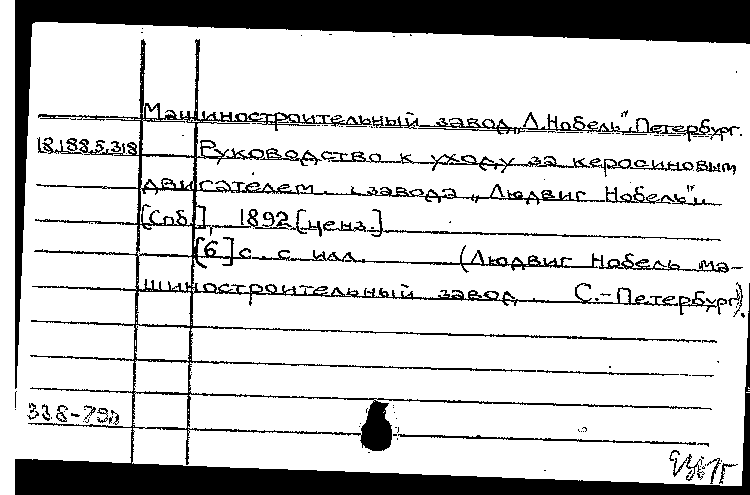 Машиностроительный завод „Л. Нобель“, Петербург.
18.188.5.318 Руководство к уходу за керосиновым
двигателем завода „Людвиг Нобель“.
[Спб.], 1892 [ценз.]
[6] с. с илл. (Людвиг Нобель ма-
шиностроительный завод. С.-Петербург).
338-79